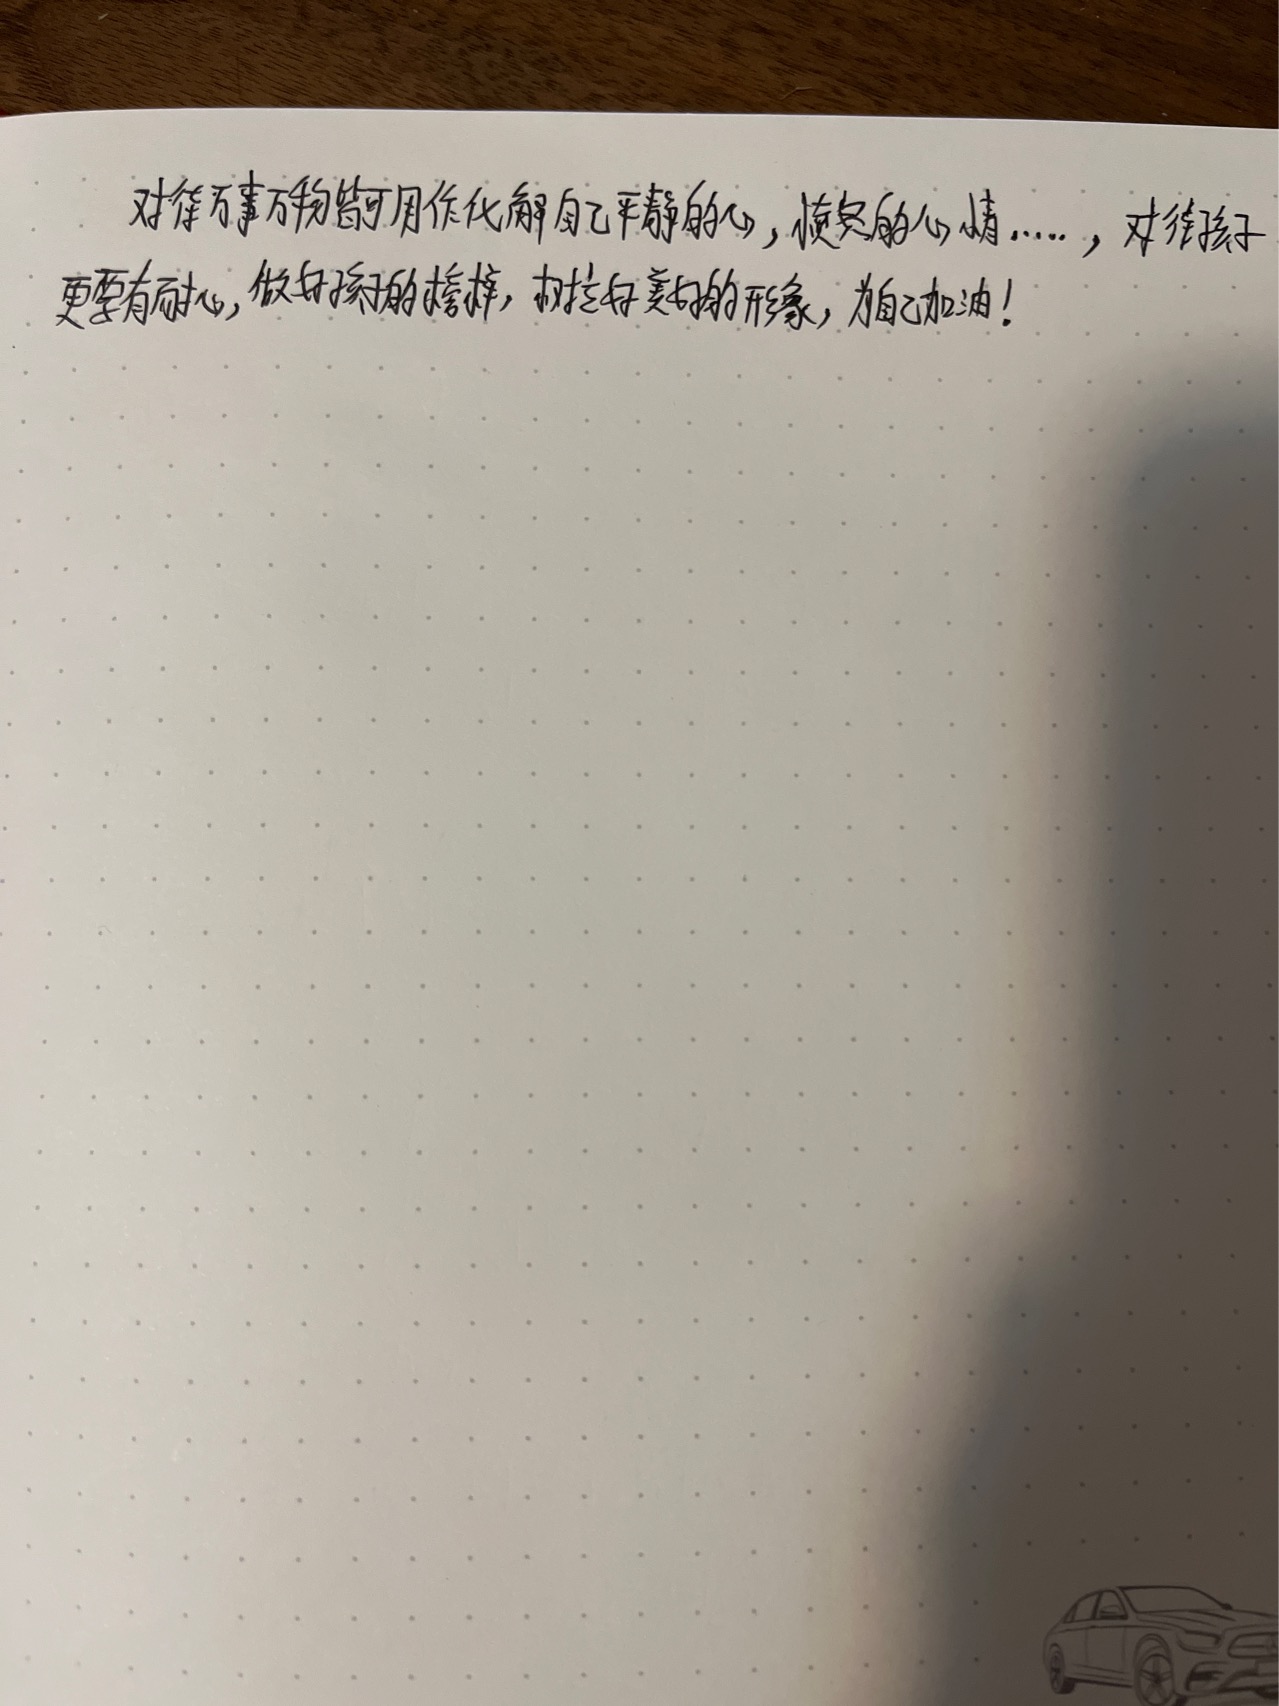 对待万事万物皆可用作化解自己平静的心，愤怒的心情……，对待孩子
更要有耐心，做好孩子的榜样，树立好美好的形象，为自己加油！